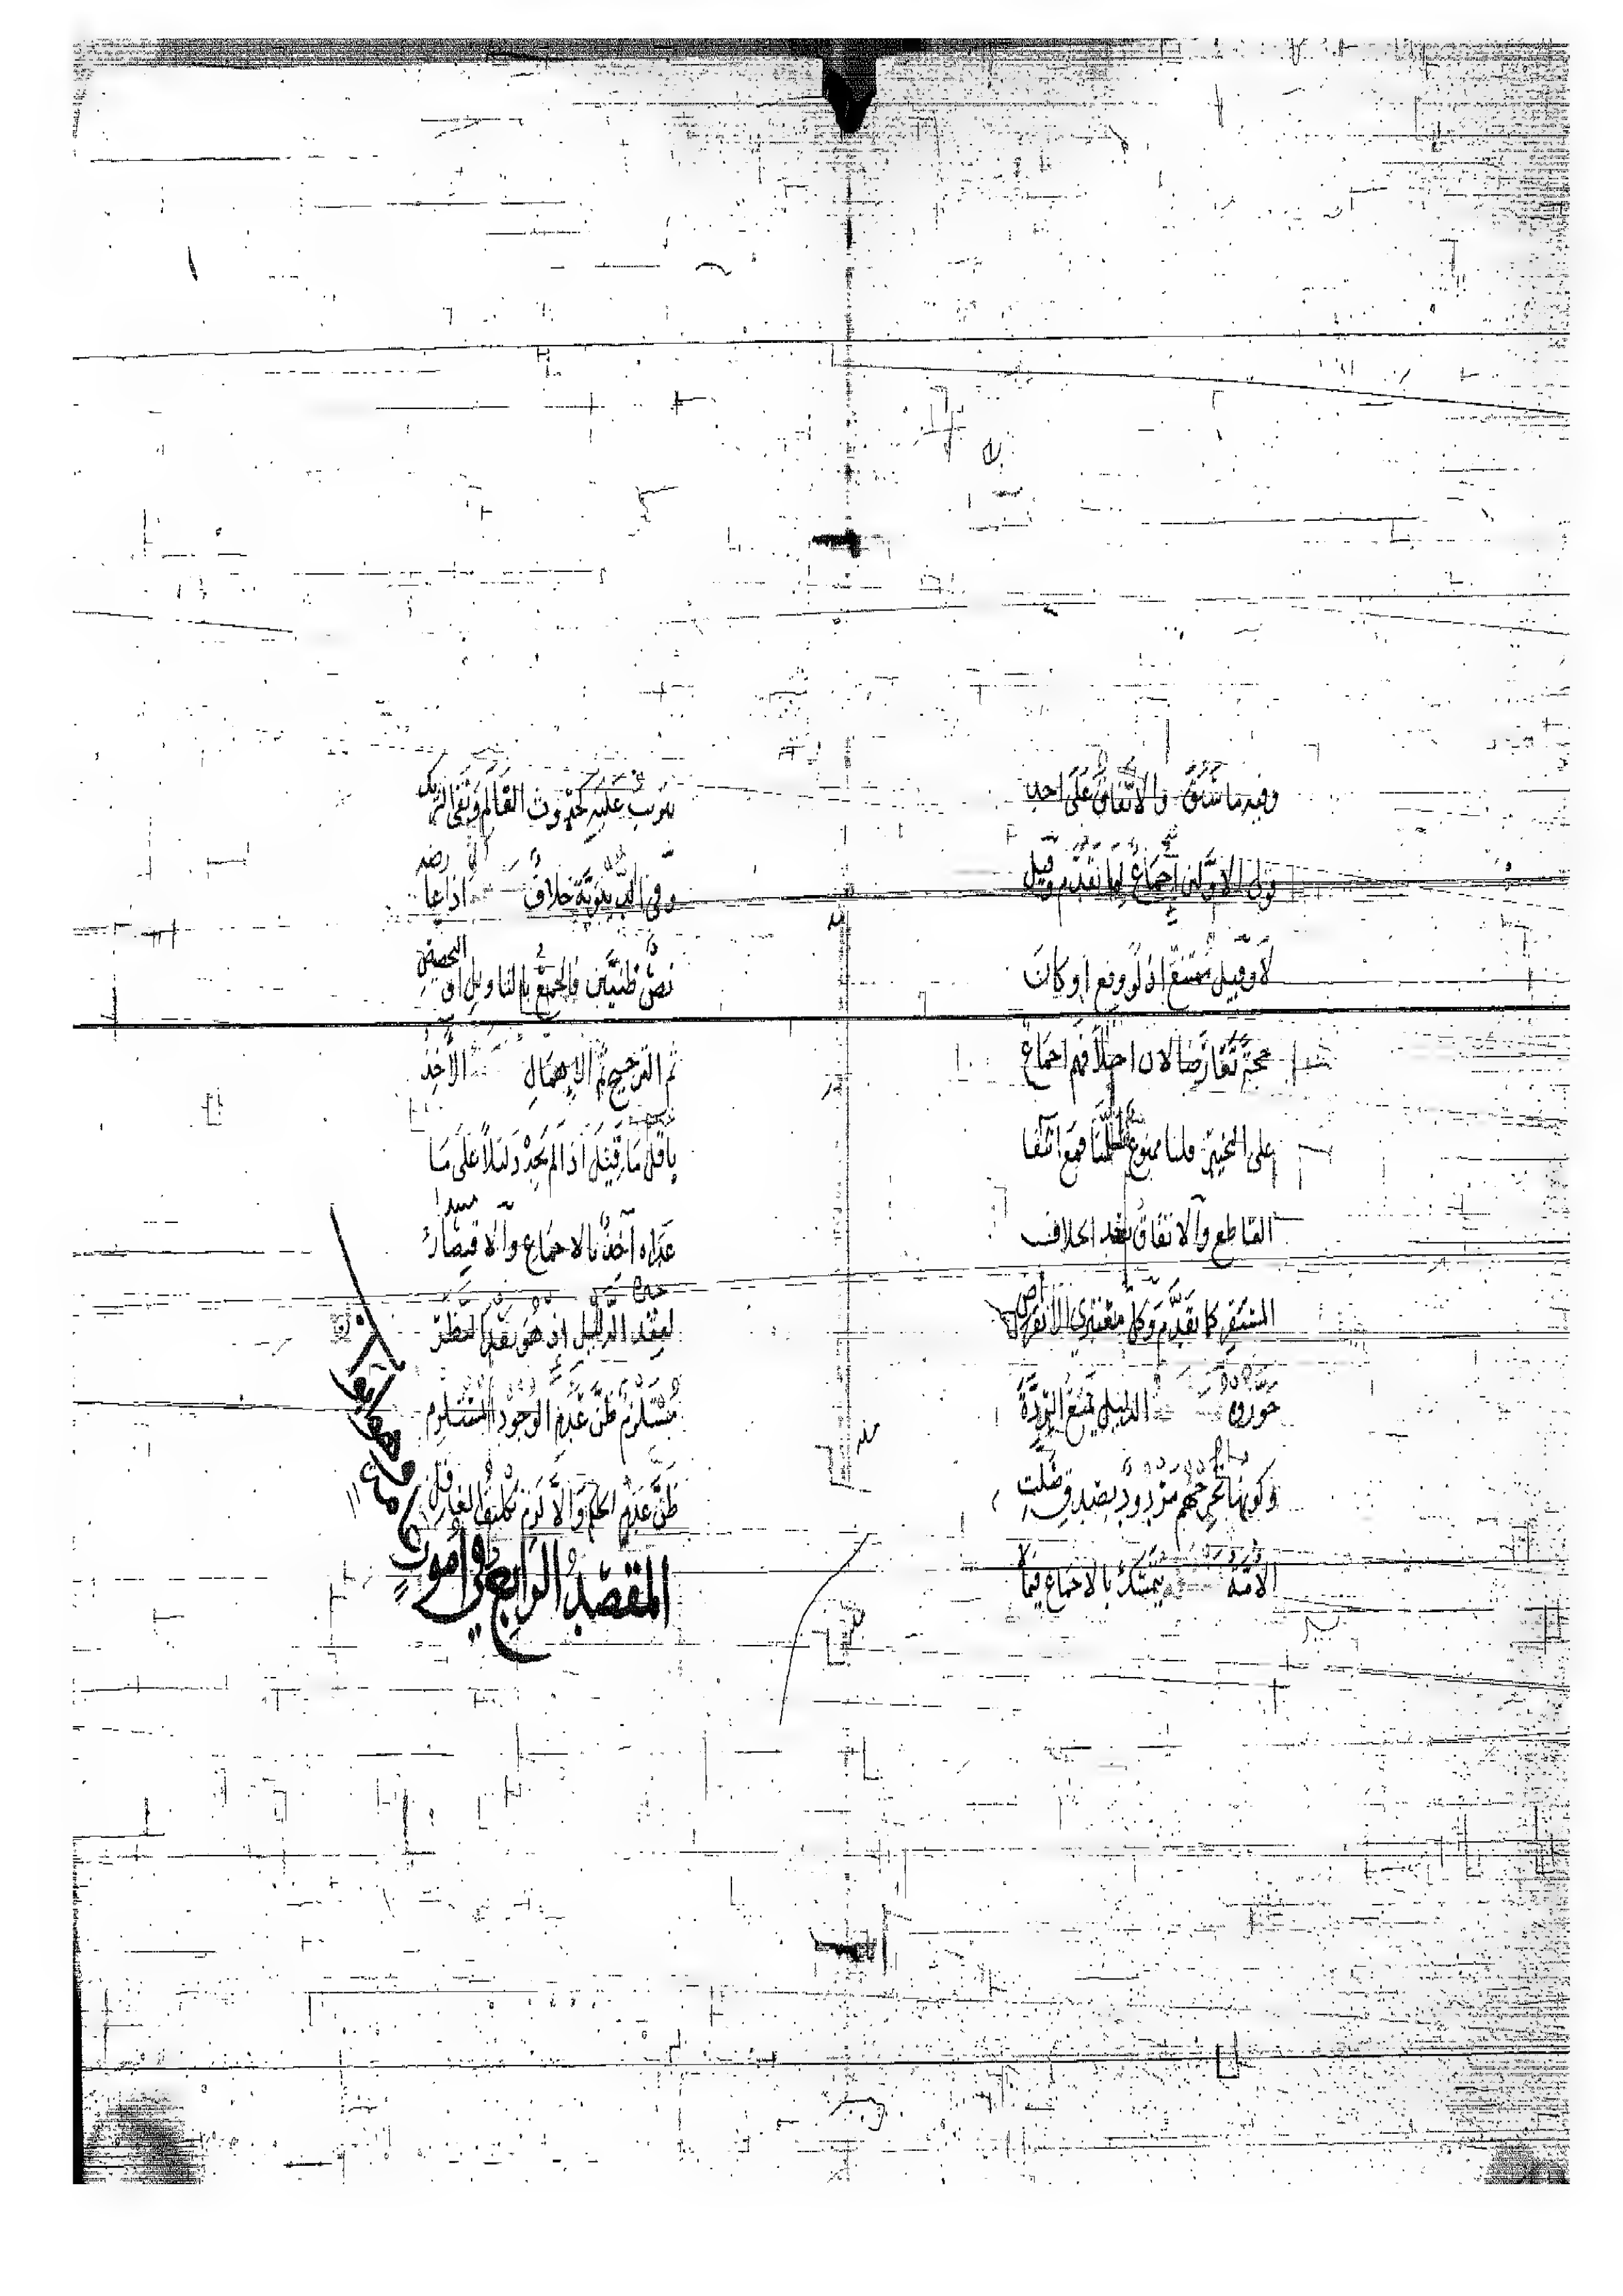 وفيه ما سبق والاتفاق على احد
قولى الاولين اجماع لما تقدم وقيل
لا وقيل ممتنع اذ لو وقع او كان
حجة تعارضا لان اختلافهم اجماع
على التخيير قلنا ممنوع سلمنا فمع انتفا
القاطع والاتفاق بعد الخلاف
المستقر كما تقدم وكل معتبرى الانقراض
جوزوه الدليل يمنع الردة
وكونها تخرجهم مردود بصدق ضلت
الامة يتمسك بالاجماع فيما
يترتب عليه حدوث العالم ونفى الشريك
وفى الدنيوية خلاف اذا عارضه
نص ظنيين فالجمع بالتاويل او التخصيص
ثم الترجيح ثم الاهمال الاخذ
باقل ما قيل اذا لم يجد دليلا على ما
عداه اخذ بالاجماع والاقتصار
لفقد الدليل اذ هو بعد النظر
مستلزم ظن عدم الوجود المستلزم
ظن عدم الحكم والا لزم تكليف الغافل
المقصد الرابع فى امور